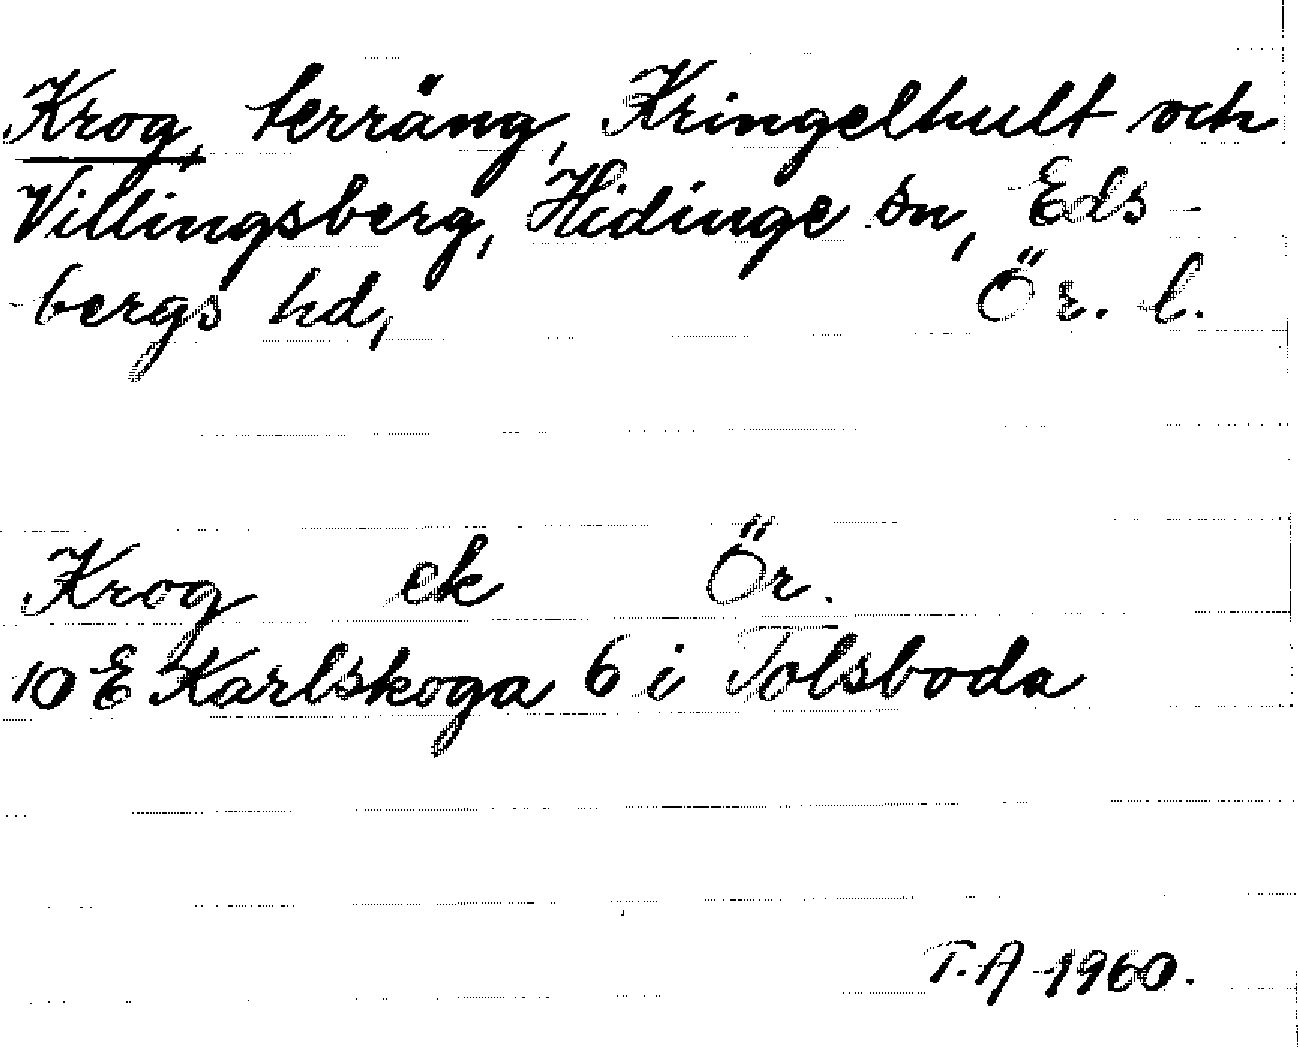 Krog, terräng, Kringelhult och
Villingsberg, Hidinge sn, Eds-
bergs hd, Ör. l.
Krog ek Ör.
10 E Karlskoga 6 i Tolsboda
T. A 1960.